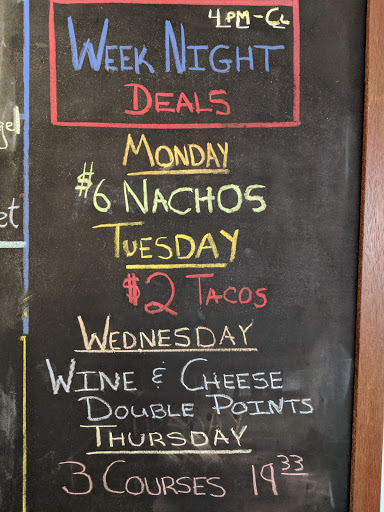 4PM-CL
WEEK NIGHT
DEALS
MONDAY
$6 NACHOS
TUESDAY
$2 TACOS
WEDNESDAY
WINE & CHEESE
DOUBLE POINTS
THURSDAY
3 COURSES 19 33